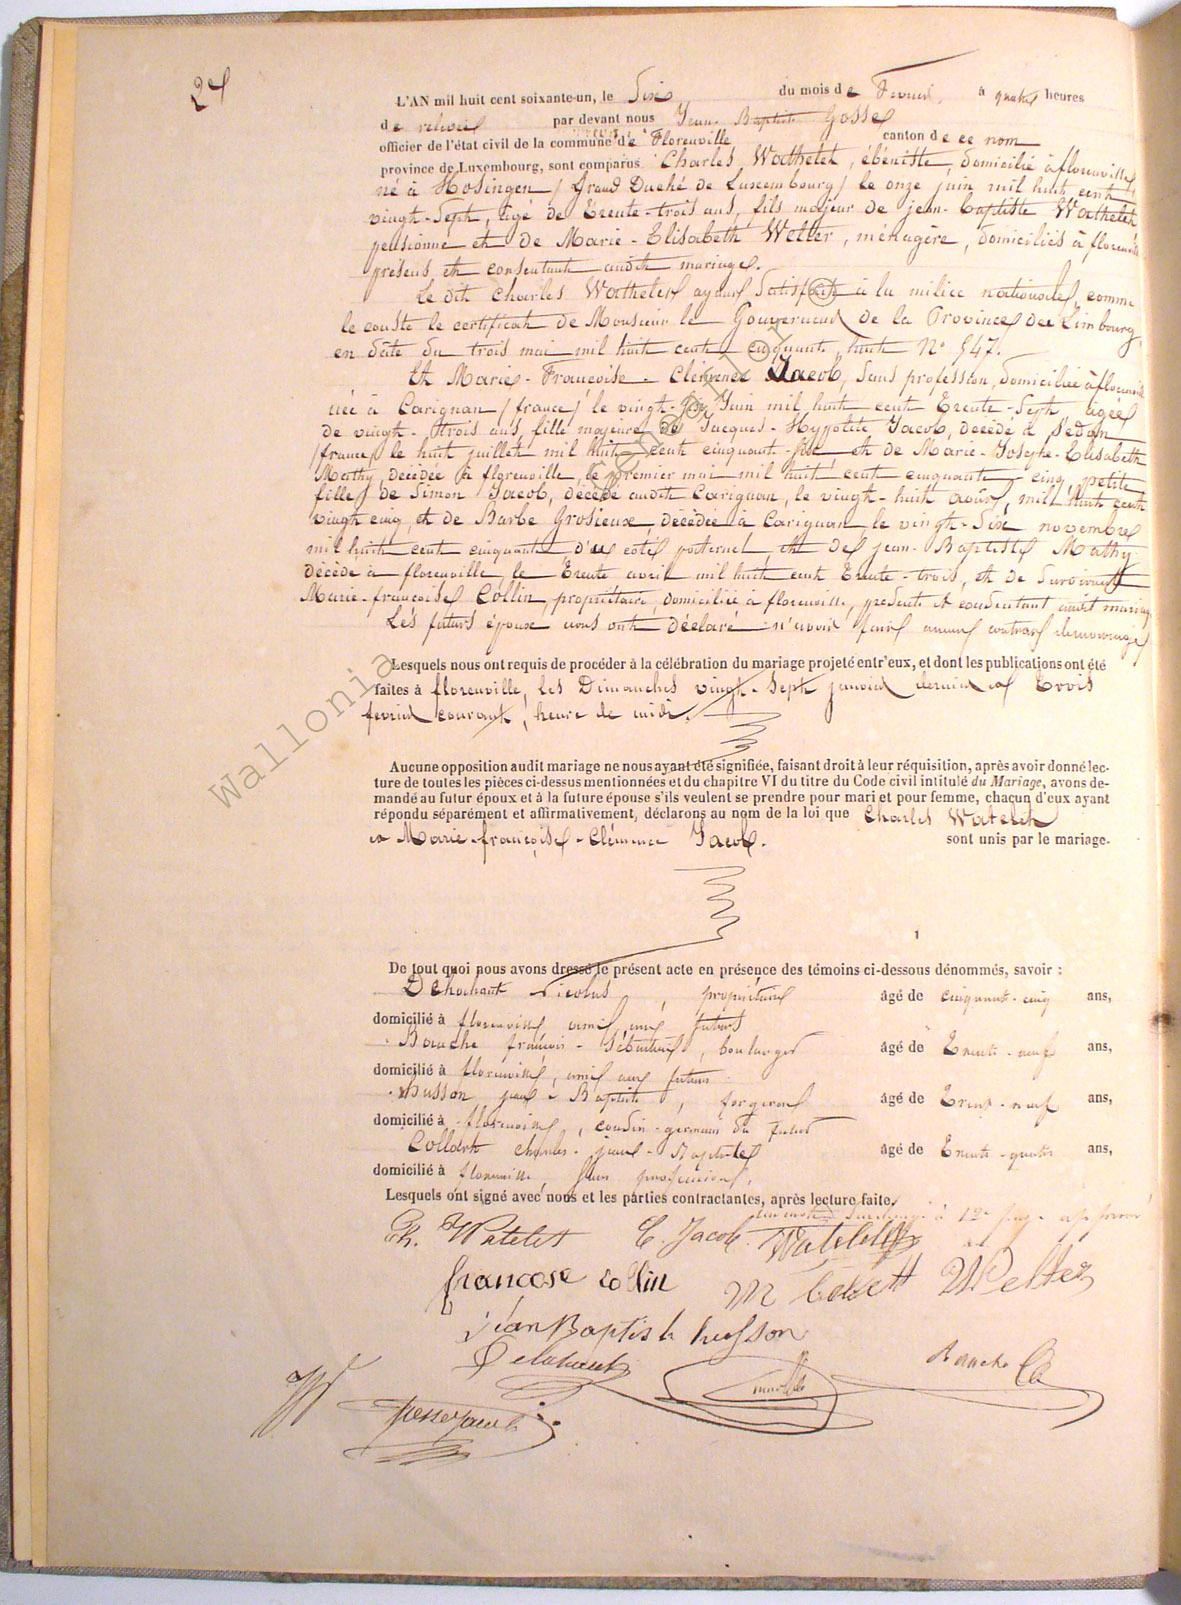 24
L'AN mil huit cent soixante-un, le Six du mois de Février, à quatre heures
de relevée par devant nous Jean Baptiste Gosse
officier de l'état civil de la commune de Florenville canton de ce nom
province de Luxembourg, sont comparus Charles Wathelet, ébéniste, domicilié à florenville
né à Hosingen / Grand Duché de Luxembourg / le onze juin mil huit cent
vingt-Sept, âgé de Trente-trois ans, fils majeur de jean-baptiste Wathelet
pensionné et de Marie-Elisabeth Welter, ménagère, domiciliés à florenville
présens et consentant audit mariage.
Le dit Charles Wathelet ayant Satisfait à la milice nationale, comme
le conste le certificat de Monsieur le Gouverneur de la Province de Limbourg
en date du trois mai mil huit cent cinquante huit N° 547.
Et Marie-Françoise-Clémence Jacob, Sans profession, domiciliée à florenville
née à Carignan / france / le vingt-six Juin mil huit cent Trente-Sept, âgée
de vingt-trois ans, fille majeure de Jacques-Hypolite Jacob, décédé à Sedan
/france/ le huit juillet mil huit cent cinquante-six et de Marie-Josephe-Elisabeth
Mathy, décédée à florenville, le premier mai mil huit cent cinquante-cinq, petite
fille de Simon Jacob, décédé audit Carignan, le vingt-huit août, mil huit cent
vingt cinq et de Barbe Grosieux, décédée à Carignan le vingt-Six novembre
mil huit cent cinquante, d'un coté paternel, et de jean-Baptiste Mathy
décédé à florenville, le Trente avril mil huit cent Trente-trois, et de Survivante
Marie-françoise Collin, propriétaire, domiciliée à florenville, présente et consentant audit mariage
Les futurs époux nous ont déclaré n'avoir fait aucun contrat de mariage
Lesquels nous ont requis de procéder à la célébration du mariage projeté entr'eux, et dont les publications ont été
faites à florenville, les Dimanches vingt-Sept janvier dernier et Trois
fevrier courant, heure de midi.
Aucune opposition audit mariage ne nous ayant été signifiée, faisant droit à leur réquisition, après avoir donné lec-
ture de toutes les pièces ci-dessus mentionnées et du chapitre VI du titre du Code civil intitulé du Mariage, avons de-
mandé au futur époux et à la future épouse s'ils veulent se prendre pour mari et pour femme, chacun d'eux ayant
répondu séparément et affirmativement, déclarons au nom de la loi que Charles Watelet
et Marie-françoise-Clémence Jacob. sont unis par le mariage.
De tout quoi nous avons dressé le présent acte en présence des témoins ci-dessous dénommés, savoir :
Nicolas, propriétaire âgé de cinquante-cinq ans,
domicilié à florenville ami aux futurs
Bauche françois-, boulanger âgé de Trente-neuf ans,
domicilié à florenville, ami aux futurs
Husson jean-Baptiste, forgeron âgé de Trente-neuf ans,
domicilié à florenville, cousin-germain du futur
Collart charles-jean-Baptiste âgé de Trente-quatre ans,
domicilié à florenville, Sans profession,
Lesquels ont signé avec nous et les parties contractantes, après lecture faite.
Ch. Watelet C. Jacob Watelet
francose collin M Welter
jéan Baptiste husson
Delahaut Bauche
Wallonia Genealor ©